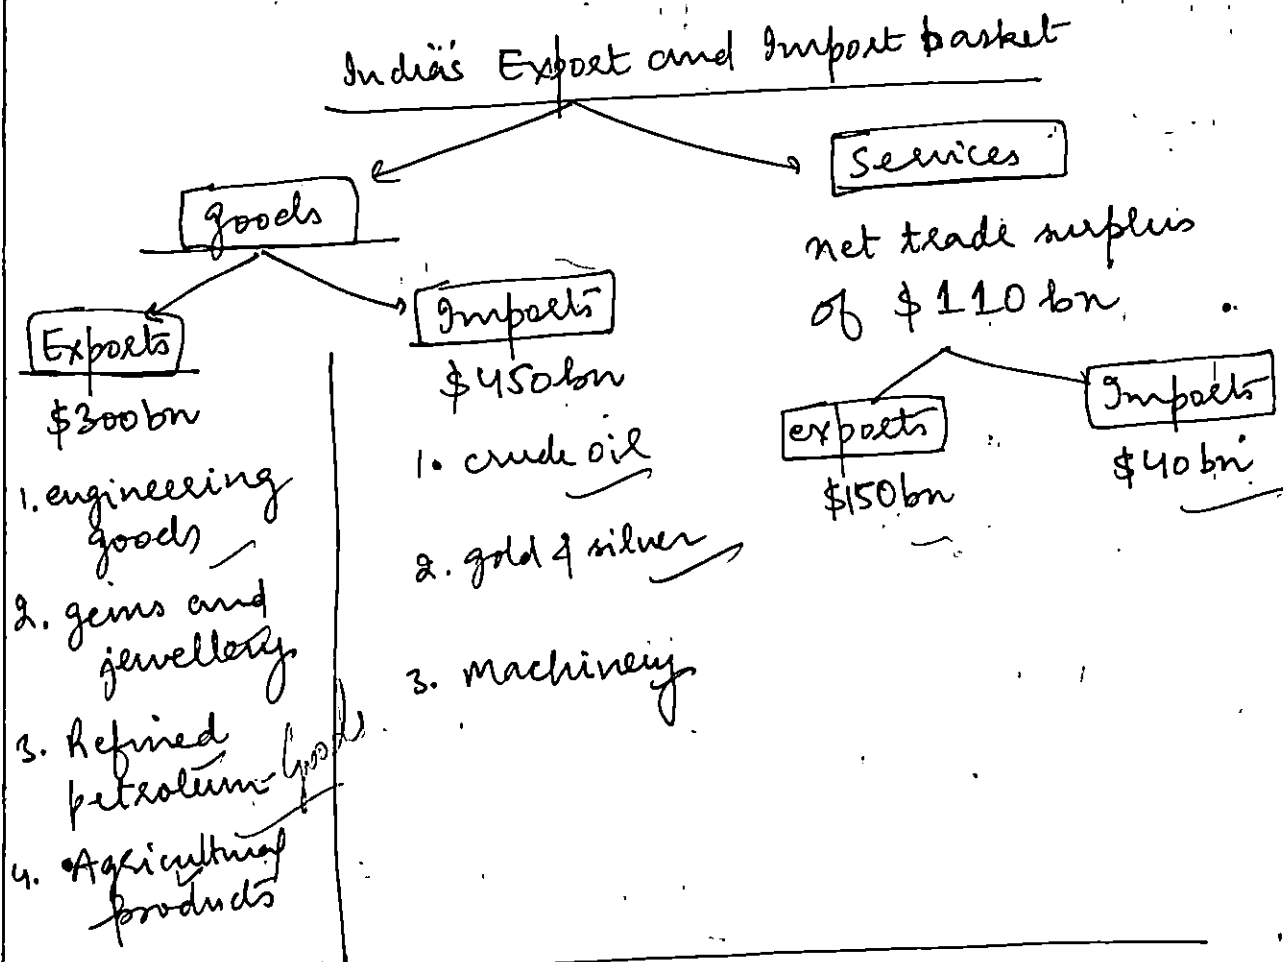 India's Export and Import basket
Goods
Exports
$300bn
1. engineering
goods
2. gems and
jewellery
3. Refined
petroleum Goods
4. Agricultural
products
Imports
$450bn
1. crude oil
2. gold & silver
3. Machinery
Services
net trade surplus
of $110 bn
exports
$150bn
Imports
$40bn